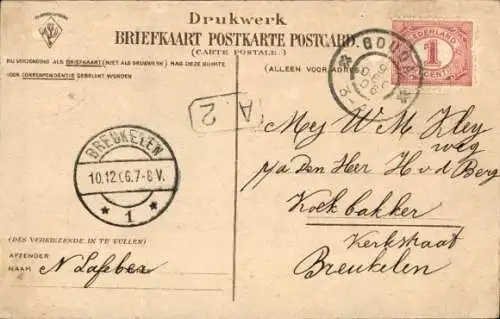 Drukwerk
BRIEFKAART POSTKARTE POSTCARD.
(CARTE POSTALE.)
BIJ VERZENDING ALS BRIEFKAART (NIET ALS DRUKWERK) MAG DEZE RUIMTE
VOOR CORRESPONDENTIE GEBRUIKT WORDEN
(ALLEEN VOOR ADRES)
GOUDA
NEDERLAND
1
CENT
A.2
BREUKELEN
10.12.06.7-8V.
* 1 *
Mej W M Kley
weg
p/a den Heer H v d Berg
Koekbakker
Kerkstraat
Breukelen
(DES VERKIEZENDE IN TE VULLEN)
AFZENDER
NAAM N Lafeber